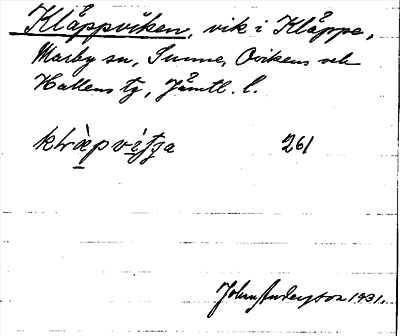 Kläppviken, vik i Kläppe,
Marby sn, Sunne, Ovikens och
Hallens tg, Jämtl. l.
261
John Anderson 1931.